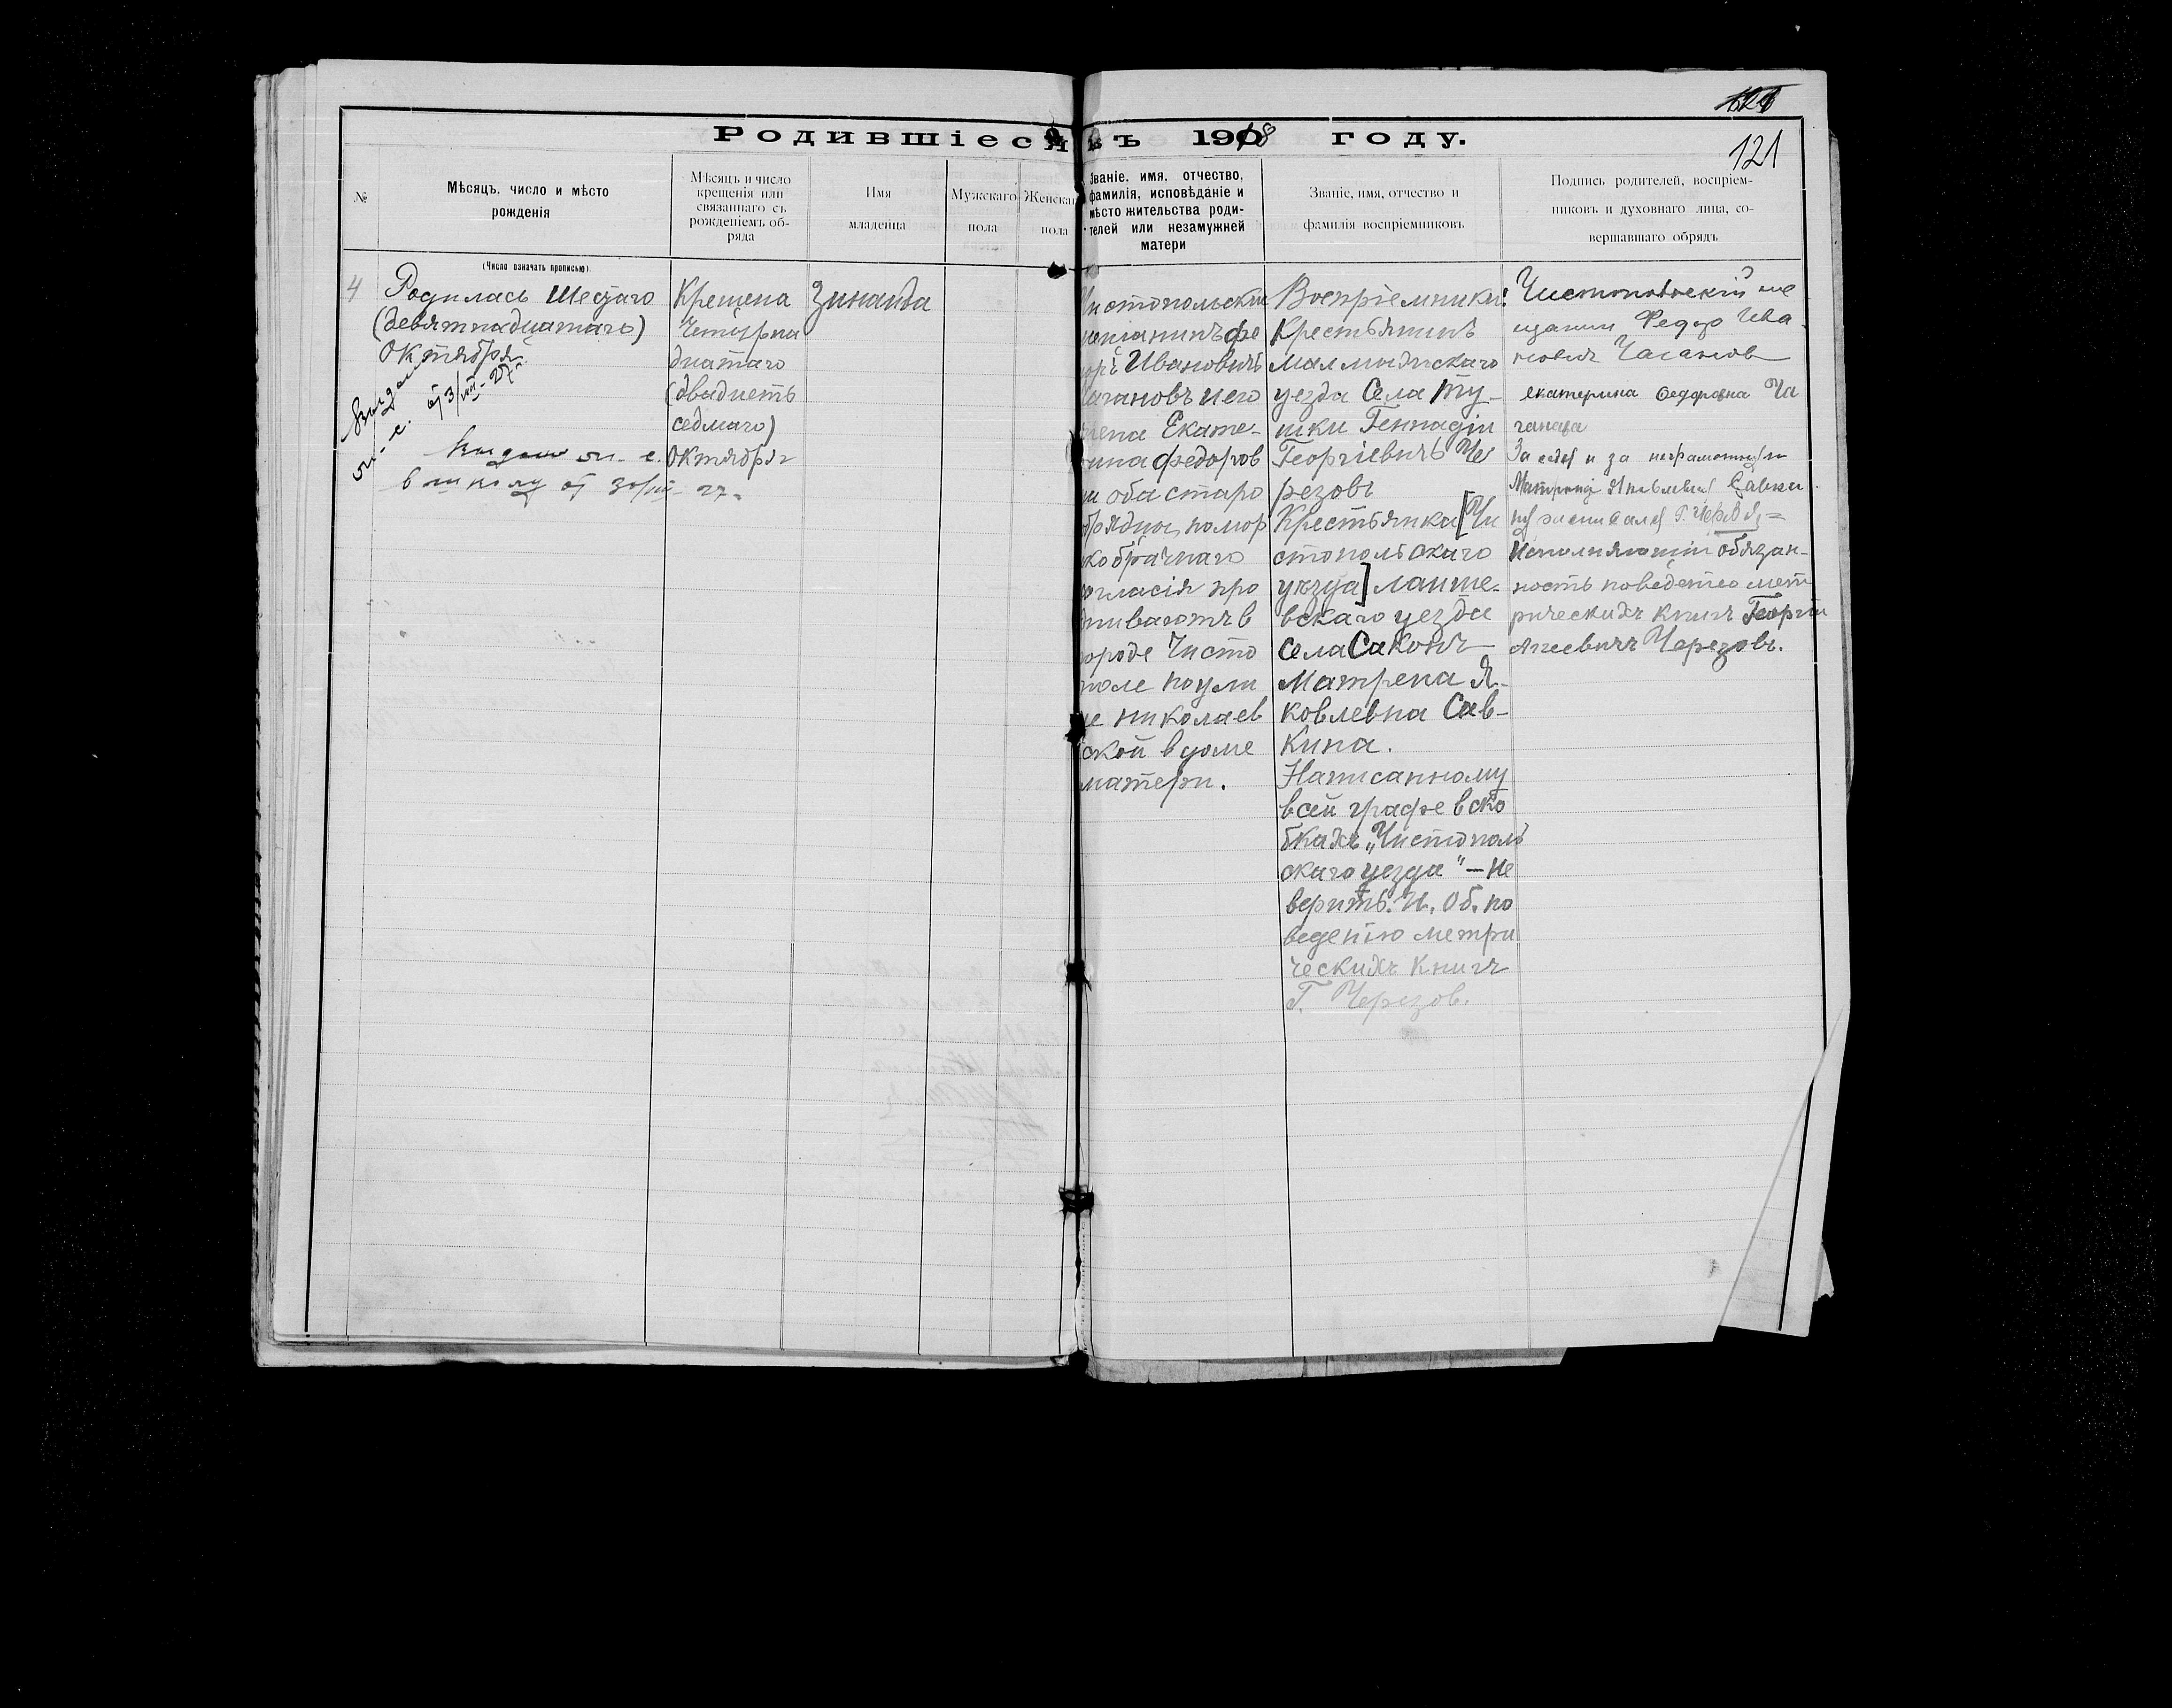 121
Родившіеся въ 1918 году.
№
Мѣсяцъ, число и мѣсто
рожденія
Мѣсяцъ и число
крещенія или
связаннаго съ
рожденіемъ об-
ряда
Имя
младенца
Мужскаго
пола
Женскаг
пола
Званіе, имя, отчество,
фамилія, исповѣданіе и
мѣсто жительства роди-
телей или незамужней
матери
Званіе, имя, отчество и
фамилія воспріемниковъ
Подпись родителей, воспріем-
никовъ и духовнаго лица, со-
вершавшаго обрядъ
(Число означать прописью).
4
Родилась Шестаго
(девятнадцатаго)
Октября
Выдана
м. с. от 3/VIII-27г.
Выдано м. с.
в школу от 30/VIII-27г.
Крещена
Четырна
дцатаго
(двадцеть
седмаго)
Октября
Зинаида
Чистопольски
мещанинъ фе
оръ Ивановичъ
Чагановъ и его
жена Екате-
рина федоров
на оба старо
обрядцы, помор
ско брачнаго
согласія про
живаютъ в
городе Чисто
поле по ули
це николаев
ской в доме
матери.
Воспріемники:
Крестьянинъ
малмыжскаго
уезда Села Ту-
шки Геннадіи
Георгіевичъ Че
резовъ
Крестьянка [Чи
стопольскаго
уезда] лаише-
вскаго уезда
Села Саконъ
Матрена Я-
ковлевна Сав-
кина.
Написанному
в сей графе в ско
бкахъ „Чистополь
скаго уезда" — не
верить. И. Об. по
ведению метри
ческихъ книгъ
Г. Черезов.
Чистопольскій ме
щанин Федор Ива
нович Чаганов
екатерина Федоровна Ча
ганова
За себя и за неграмотную
Матрену Яковлевну Савки
ну расписался Г. Черезов
Исполняющій обязан-
ность по ведетею мет
рическихъ книгъ Георгій
Аггеевичъ Черезовъ.